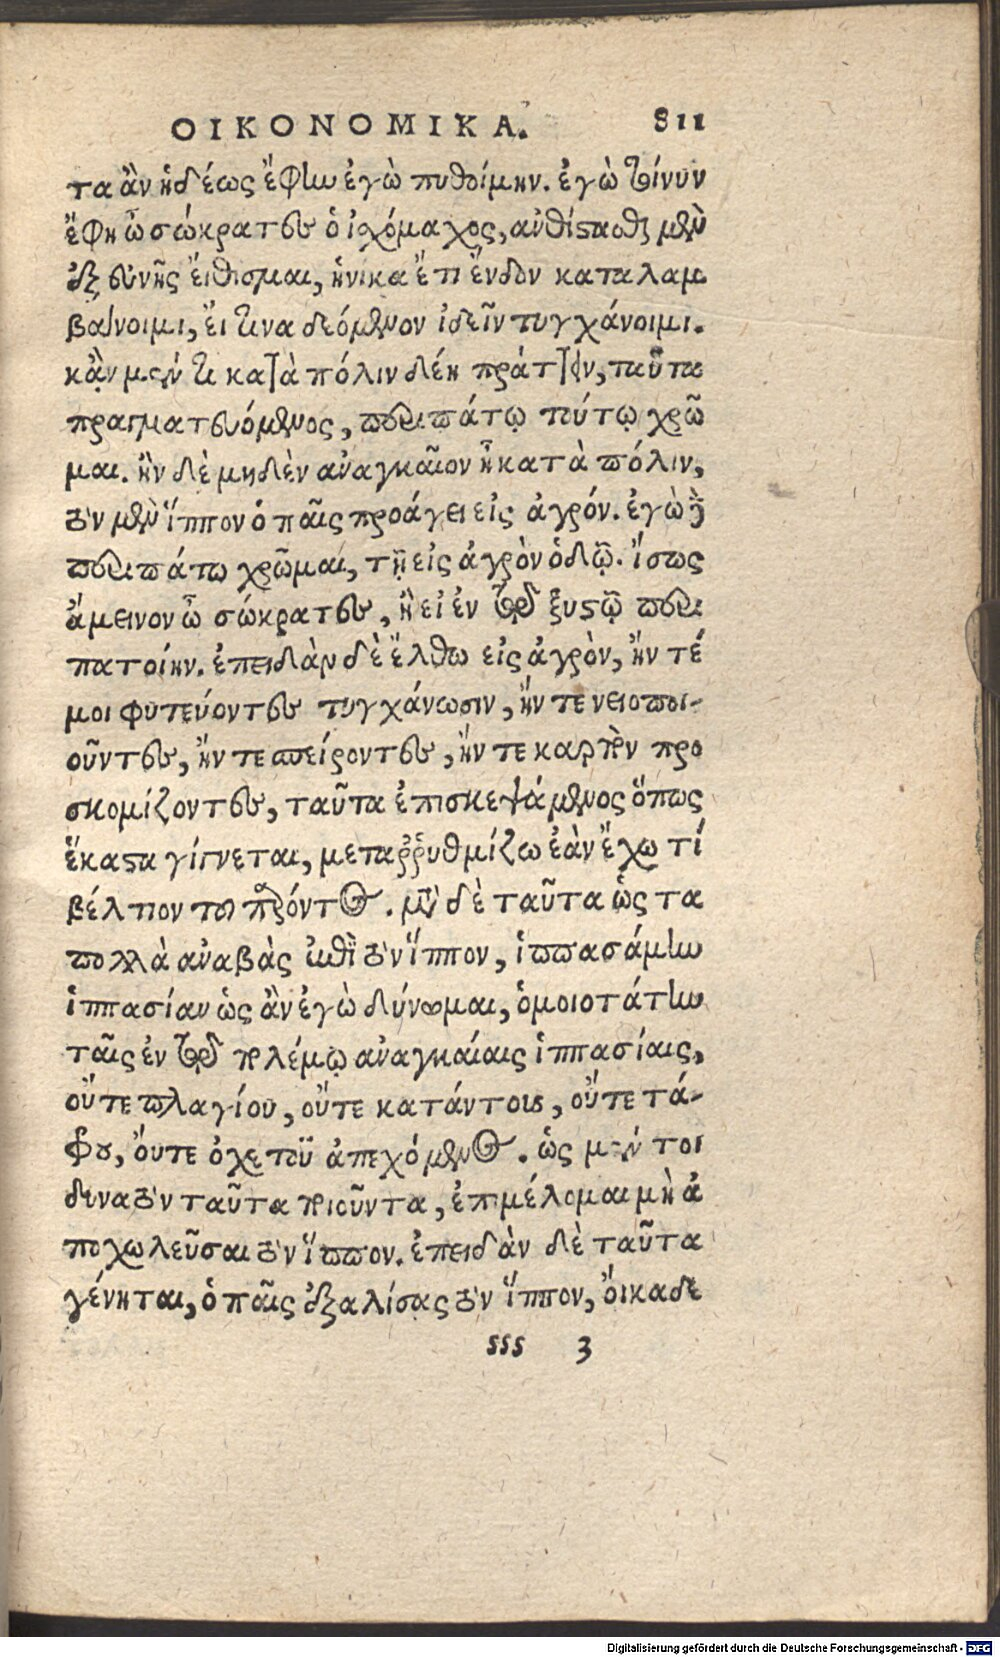 ΟΙΚΟΝΟΜΙΚΑ. 811
τα ἂν ἡδέως ἔφην ἐγὼ πυθοίμην. ἐγὼ τοίνυν
ἔφη ὦ σώκρατες ὁ ἰσχόμαχος, ἀνίστασθαι μὲν
ἐξ εὐνῆς εἴθισμαι, ἡνίκα ἔτι ἔνδον καταλαμ
βάνοιμι, εἴ τινα δεόμενον ἰδεῖν τυγχάνοιμι.
κἂν μέν τι κατὰ πόλιν δέῃ πράττειν, ταῦτα
πραγματευόμενος, περιπάτῳ τούτῳ χρῶ
μαι. ἢν δὲ μηδὲν ἀναγκαῖον ᾖ κατὰ πόλιν,
τὸν μὲν ἵππον ὁ παῖς προάγει εἰς ἀγρόν. ἐγὼ δὲ
περιπάτῳ χρῶμαι, τῇ εἰς ἀγρὸν ὁδῷ. ἴσως
ἄμεινον ὦ σώκρατες, ἢ εἰ ἐν τῷ ξυστῷ περι
πατοίην. ἐπειδὰν δὲ ἔλθω εἰς ἀγρὸν, ἤν τέ
μοι φυτεύοντες τυγχάνωσιν, ἤν τε νειοποι-
οῦντες, ἤν τε σπείροντες, ἤν τε καρπὸν προ
σκομίζοντες, ταῦτα ἐπισκεψάμενος ὅπως
ἕκαστα γίγνεται, μεταῤῥυθμίζω ἐὰν ἔχω τί
βέλτιον τοῦ παρόντος. μετὰ δὲ ταῦτα ὡς τα
πολλὰ ἀναβὰς ἐπὶ τὸν ἵππον, ἱππασάμην
ἱππασίαν ὡς ἂν ἐγὼ δύνωμαι, ὁμοιοτάτην
ταῖς ἐν τῷ πολέμῳ ἀναγκαίαις ἱππασίαις,
οὔτε πλαγίου, οὔτε κατάντους, οὔτε τά-
φρου, ὄυτε ὀχετοῦ ἀπεχόμενος. ὡς μέν τοι
δυνατὸν ταῦτα ποιοῦντα, ἐπιμέλομαι μὴ ἀ
ποχωλεῦσαι τὸν ἵππον. ἐπειδὰν δὲ ταῦτα
γένηται, ὁ παῖς ἐξαλίσας τὸν ἵππον, ὄικαδε
sss 3
Digitalisierung gefördert durch die Deutsche Forschungsgemeinschaft - DFG